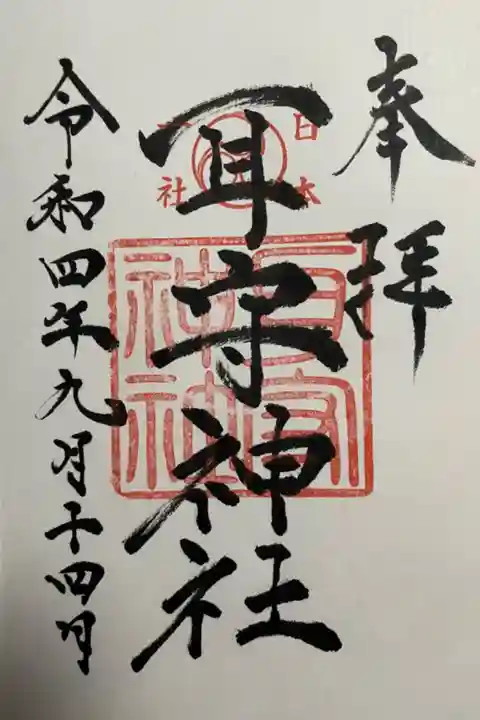 奉拝
日本一社
耳守神社
耳守神社
令和四年九月十四日